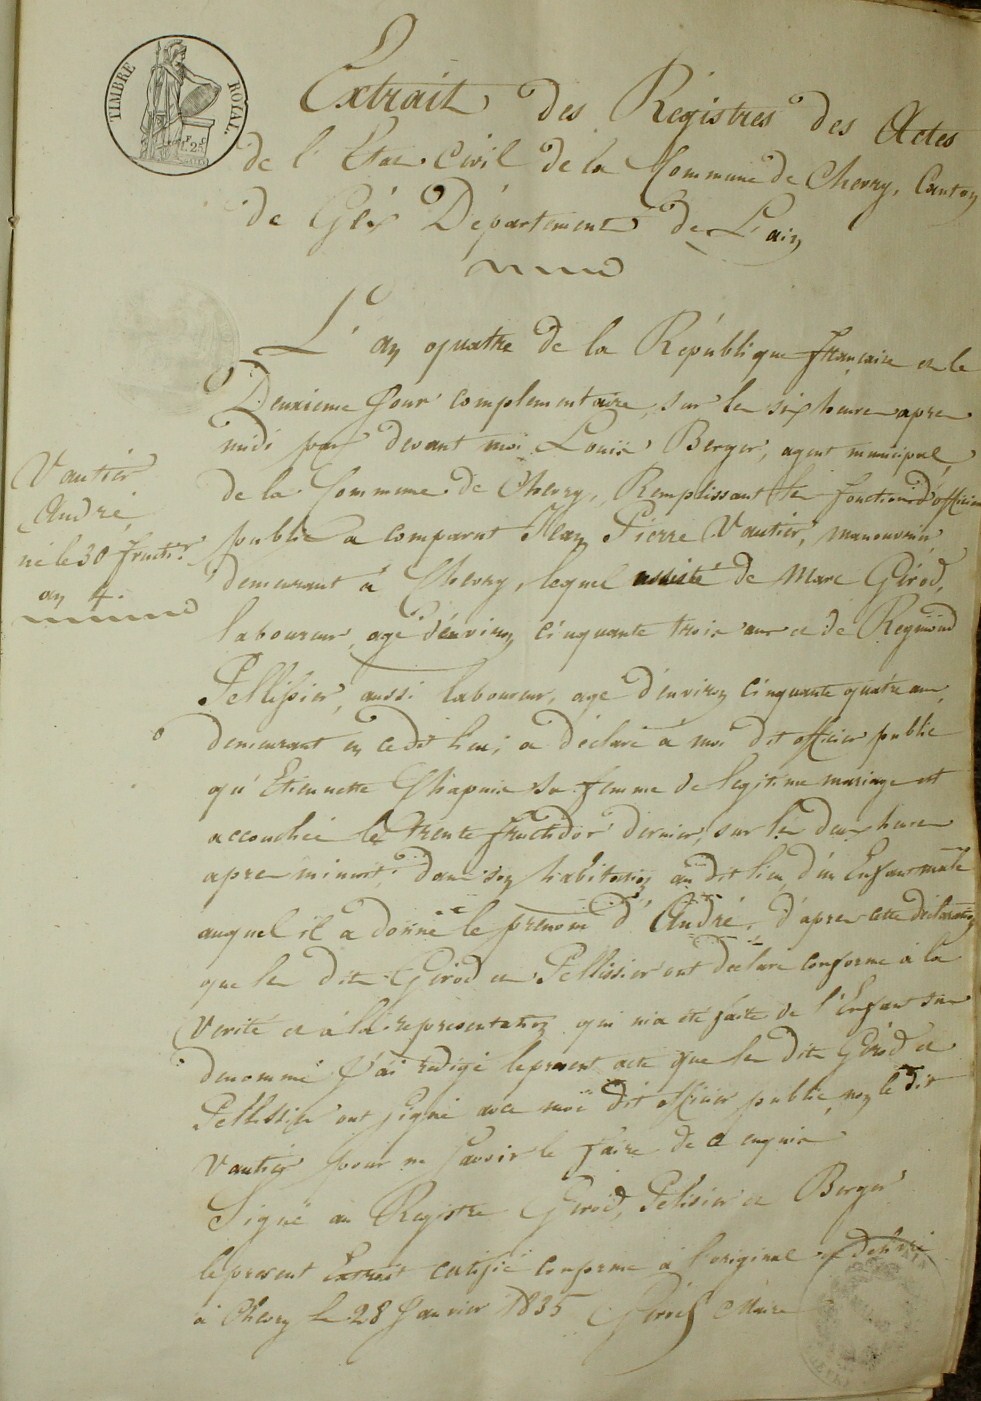 TIMBRE ROYAL.
Extrait des Régistres des Actes
de l'Etat Civil de la Commune de Chevry, Canton
de Géx Département de L'ain
L'an quatre de la République française et le
Deuxieme Jour complementaire, sur les six heures apres
midi par devant moi Louis Berger, agent municipal
de la Commune de Chevry, Remplissant les fonctions d'officier
public a comparut Jean Pierre Vautier, manouvrier,
demeurant à Chevry, lequel assisté de Marc Girod,
laboureur, agé d'environ cinquante trois ans et de Reymond
Pellissier, aussi laboureur, agé d'environ cinquante quatre ans,
demeurant en cedit lieu; a déclaré à moi dit officier public
qu'Etiennette Chapuis sa femme de legitime mariage est
accouchée le trente fructidor dernier, sur les deux heures
apres minuit, dans son habitation au dit lieu, d'un Enfant mâle
auquel il a donné le prenom d'André, d'apres cette déclaration
que les dits Girod et Pellissier ont declaré conforme à la
verité et à la representation qui m'a été faite de l'Enfant sus
denommé J'ai redigé le present acte que les dits Girod et
Pellissier ont signé avec moi dit officier public, non le dit
Vautier pour ne savoir le faire de ce enquis
Signé au Registre Girod, Pelissier et Berger
le present Extrait certifié conforme à l'original et délivré
à Chevry le 28 Janvier 1835 Girod Maire
Vautier
André
né le 30 fructor
an 4.